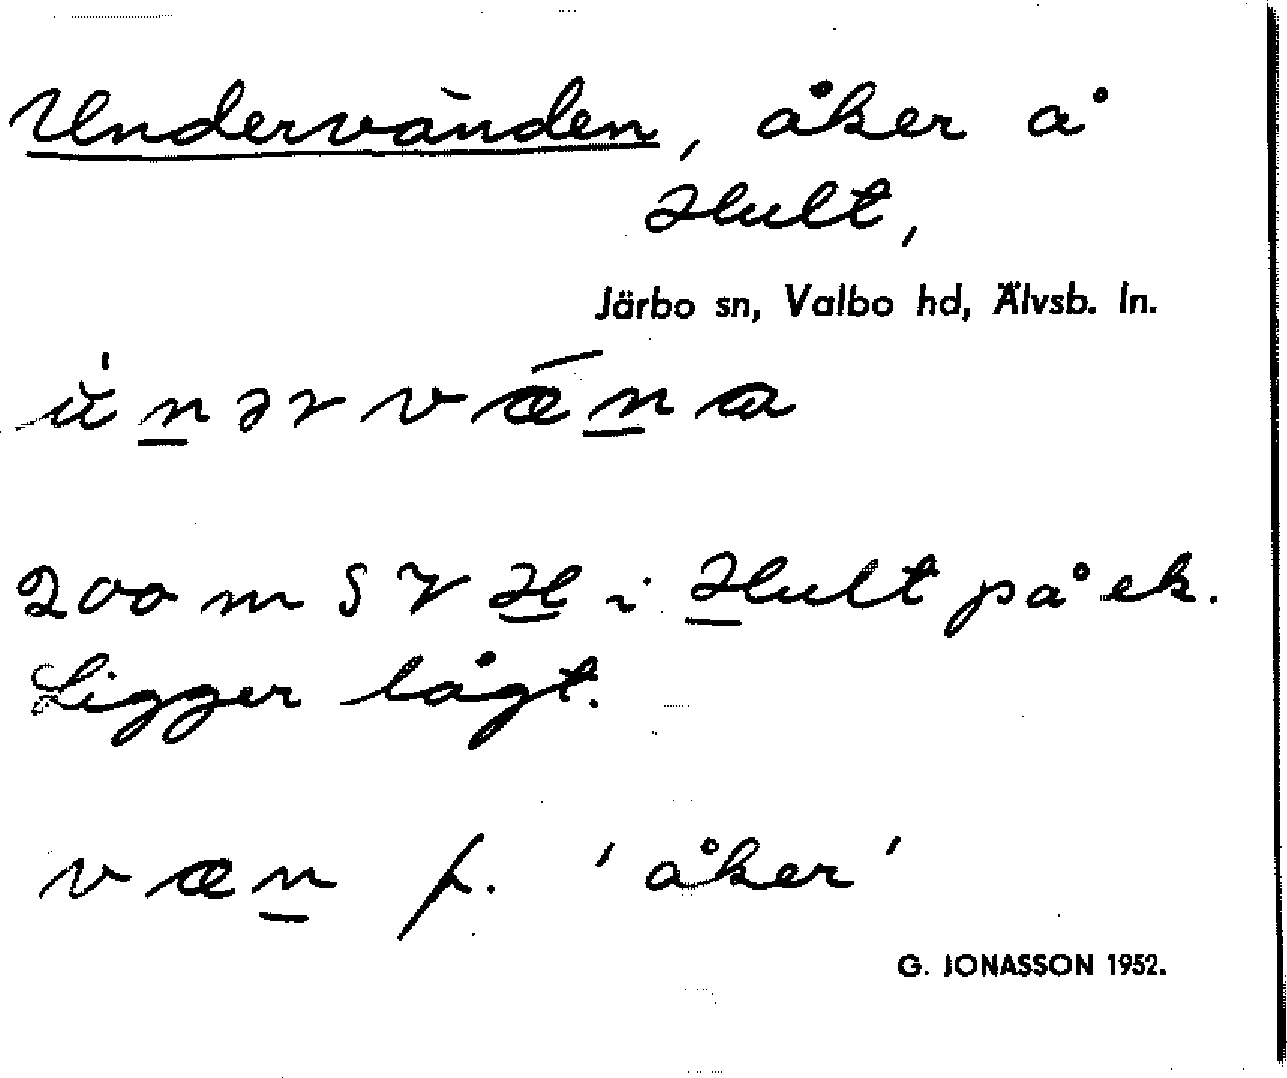 Undervänden, åker å
Hult,
Järbo sn, Valbo hd, Älvsb. ln.
ùnərvǽna
200 m S V H i Hult på ek.
Ligger lågt.
væn f. 'åker'
G. JONASSON 1952.